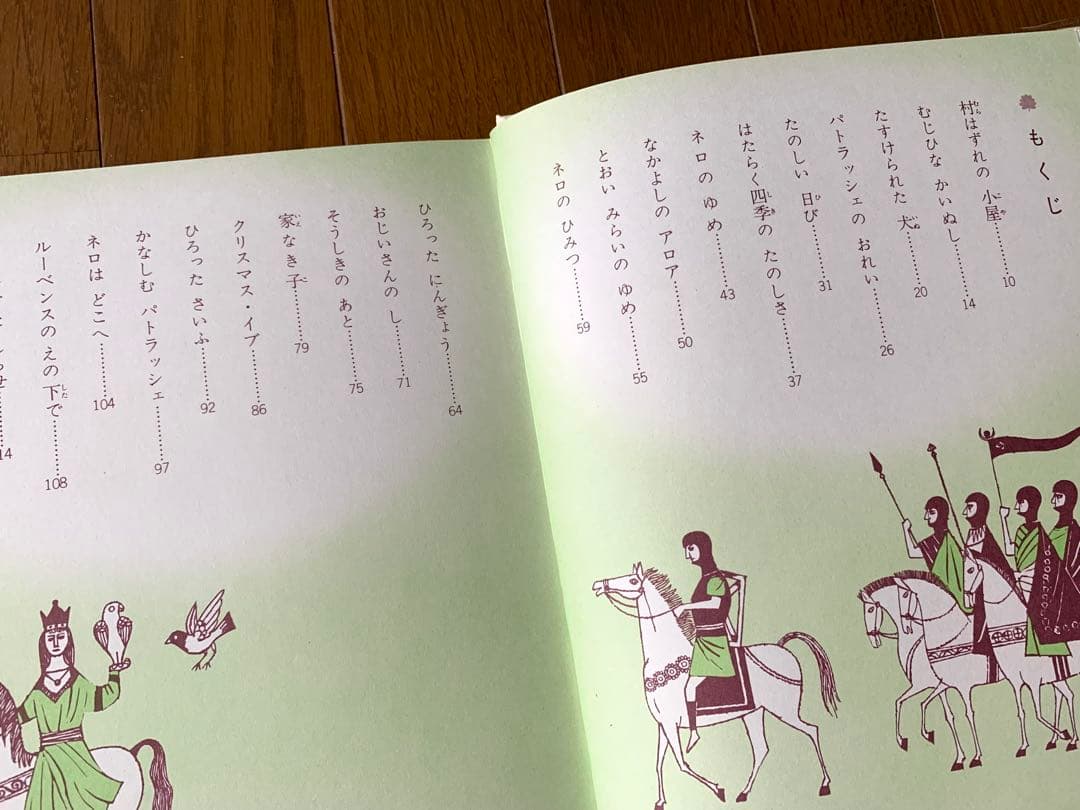 もくじ
村はずれの 小屋………10
むじひな かいぬし………14
たすけられた 犬………20
パトラッシェの おれい………26
たのしい 日び………31
はたらく四季の たのしさ………37
ネロの ゆめ………43
なかよしの アロア………50
とおい みらいの ゆめ………55
ネロの ひみつ………59
ひろった にんぎょう………64
おじいさんの し………71
そうしきの あと………75
家なき子………79
クリスマス・イブ………86
ひろった さいふ………92
かなしむ パトラッシェ………97
ネロは どこへ………104
ルーベンスの えの 下で………108